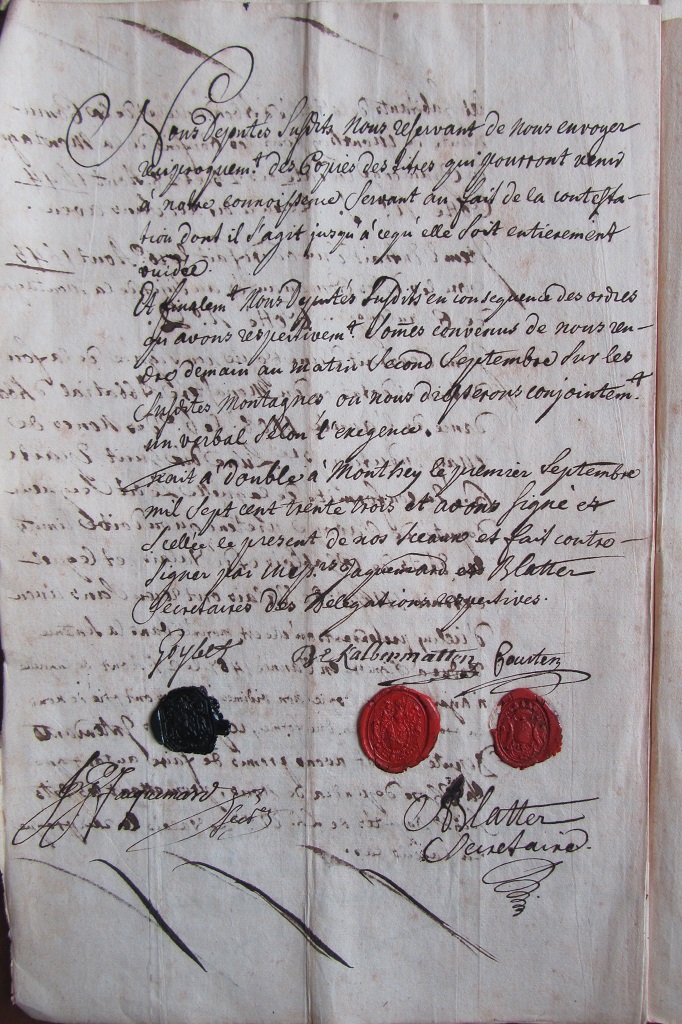 Nous Députés Susdits Nous reservant de nous envoyer
reciproquem.t des Copies des titres qui pourront venir
à notre connoissence Servant au fait de la contesta-
tion dont il s'agit jusqu'à cequ'elle soit entierement
vuidée.
Et finalem.t Nous Deputés Susdits en consequence des ordres
qu'avons respectivem.t Somes convenus de nous ren-
dre demain au matin Second Septembre Sur les
Susdites Montagnes ou nous dresserons conjointem.t
un verbal Selon l'exegence.
Fait à double à Monthey le premier Septembre
mil Sept cent trente trois et avons Signé et
Scellé le present de nos Sceaux et fait contre-
Signer par Messrs Jaquemard et Blatter
Secretaires des Délégations respectives.
Goybet De Kalbermatten Courten
Jaquemard Secr.e
Blatter
Secretaire.